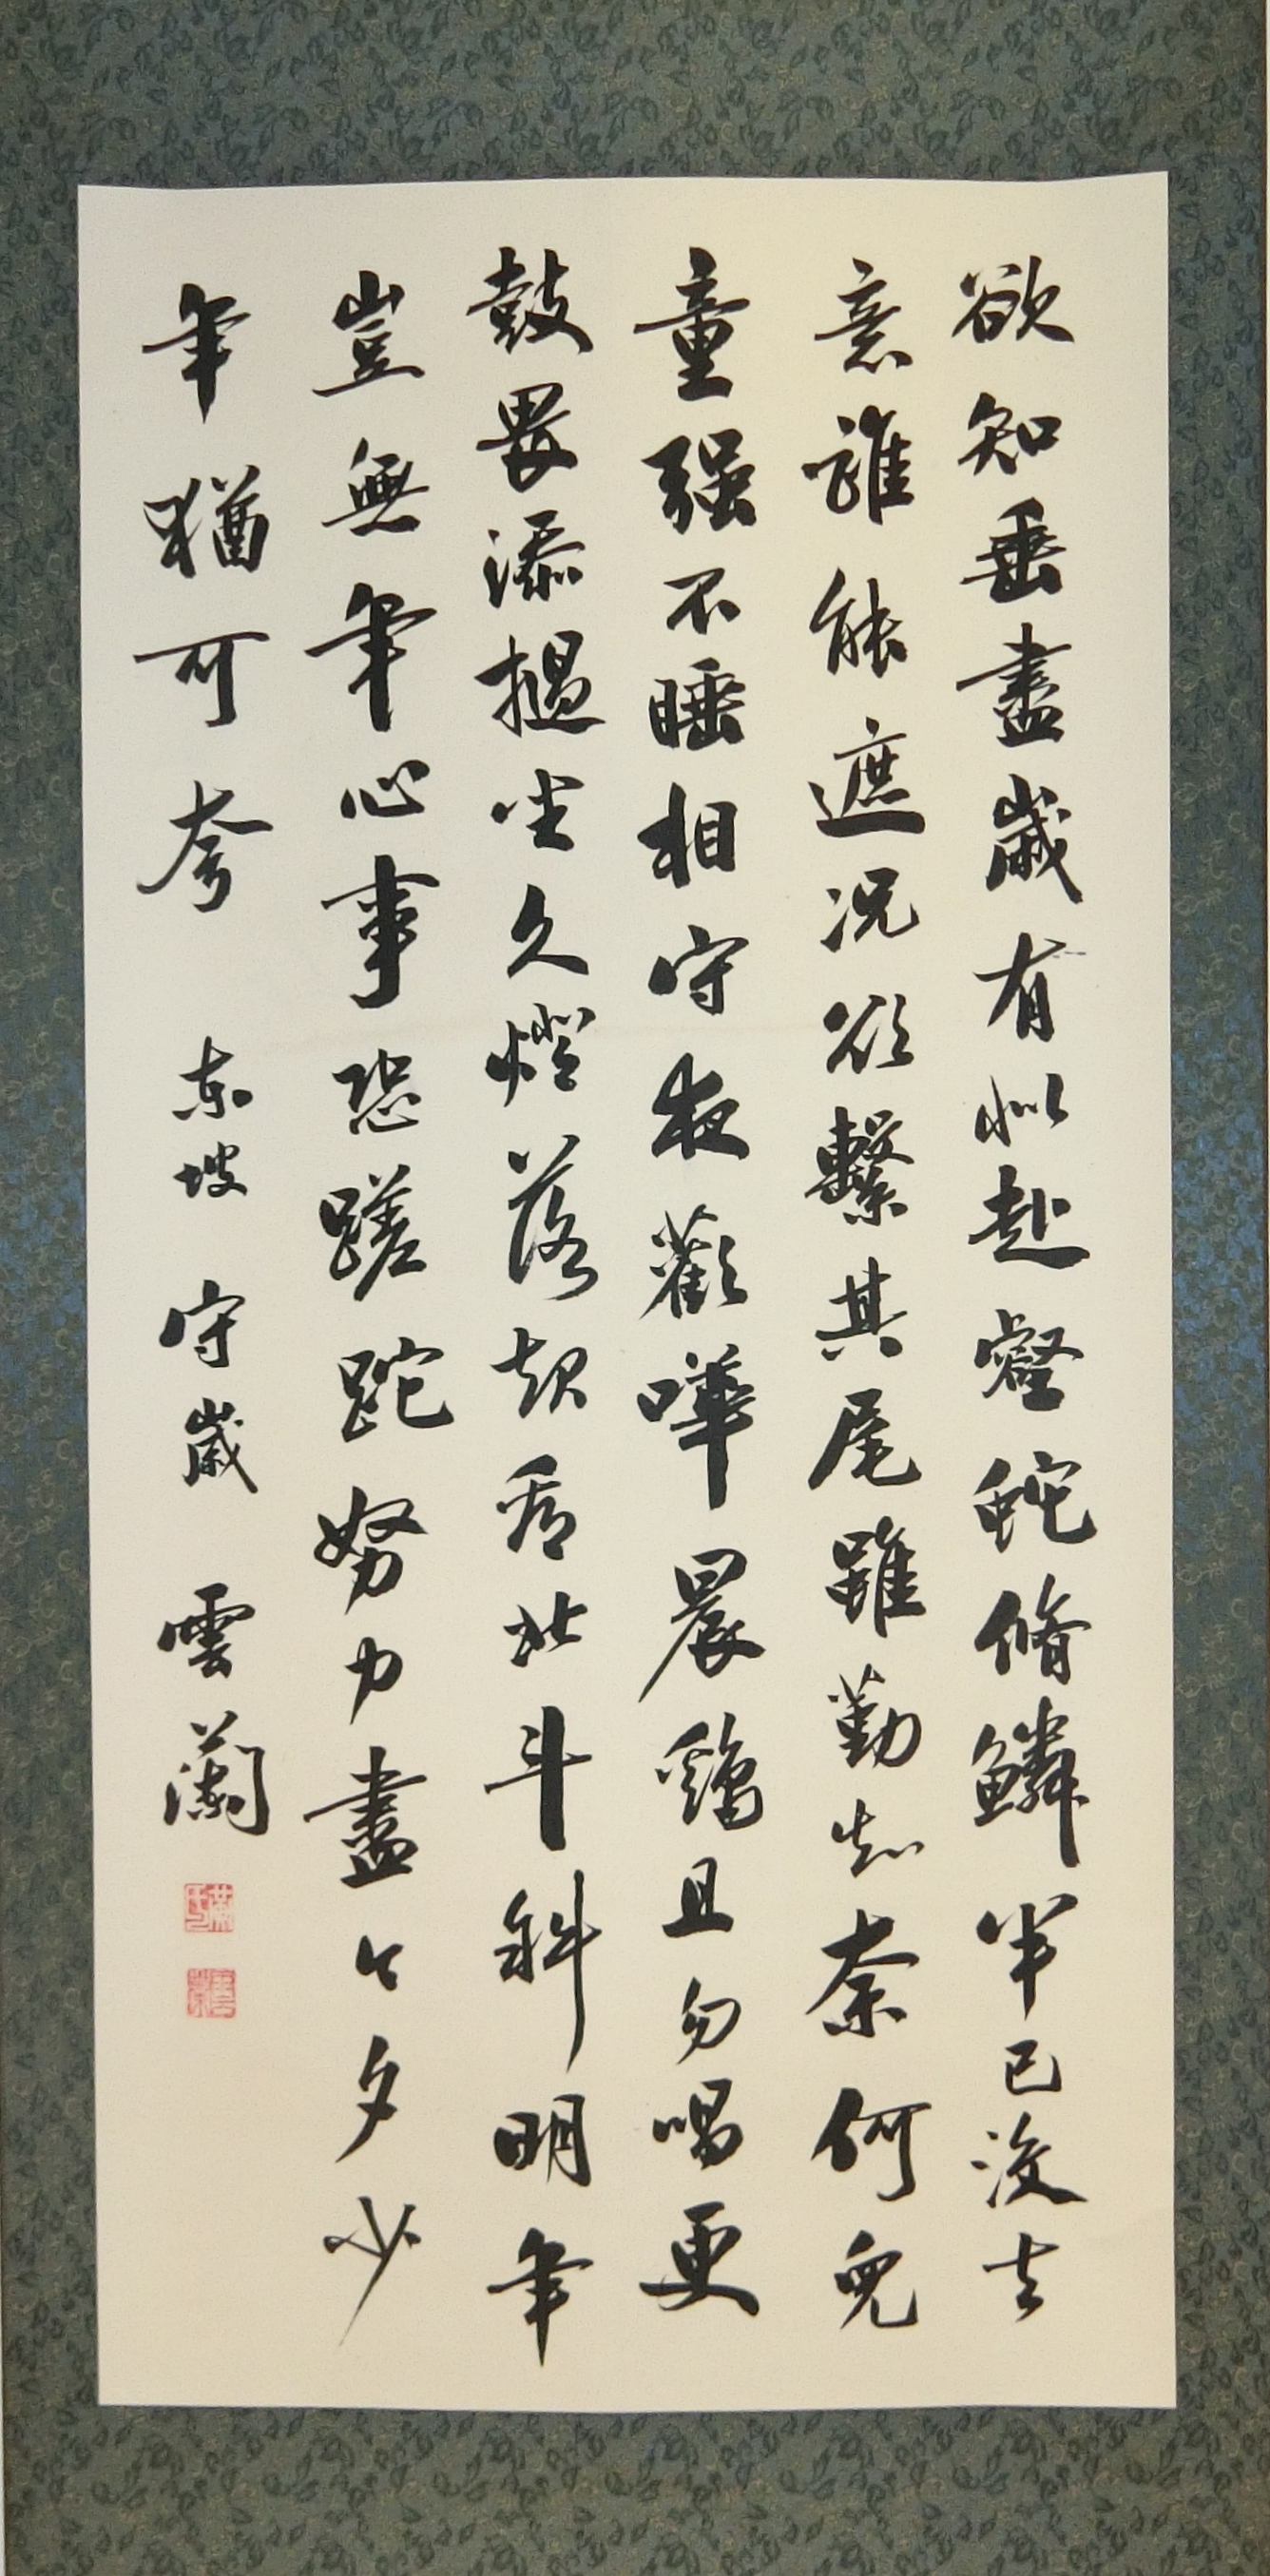 欲知垂盡歲有似赴壑蛇脩鱗半已沒去
意誰能遮況欲繫其尾雖勤知奈何兒
童強不睡相守夜歡嘩晨鷄且勿唱更
鼓畏添撾坐久燈落起看北斗斜明年
豈無年心事恐蹉跎努力盡今夕少
年猶可夸 東坡 守歲 雲蘭